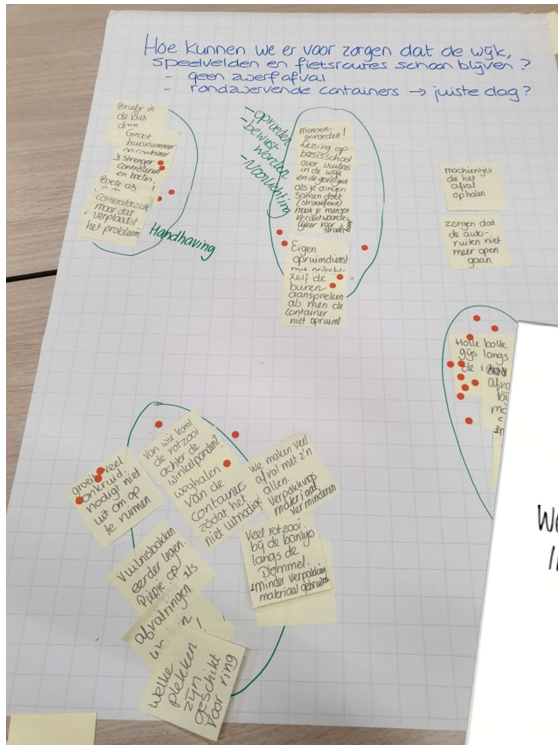 Hoe kunnen we er voor zorgen dat de wijk,
speelvelden en fietsroutes schoon blijven?
- geen zwerfafval
- rondzwervende containers → juiste dag?
Briefje in
de bus
doen
Groot
huisnummer
strenger
controleren
Boete als
maar dat
verplaatst
het probleem
Handhaving
- opvoeden
- bewust
worden
- Voorlichting
Mensen
opvoeden!
Lezing op
basisschool
over vuilnis
in de wijk
en de gevolgen
als je dingen
samen doet
maak je mensen
Eigen
opruimdienst
Zelf de
buren
aanspreken
als men de
container
niet opruimt
machientjes
die het
afval
ophalen
zorgen dat
de auto-
ruiten niet
meer open
gaan
Holle bolle
gijs langs
de
groeit veel
onkruid.
nodigt niet
uit om op
te ruimen
Van wie komt
de rotzooi
achter de
winkelpanden?
weghalen
van de
containers
zodat het
niet uitnodigt
We maken veel
afval met z'n
allen.
Verpakkings
materiaal
verminderen
Veel rotzooi
bij de bankjes
langs de
Dommel.
Minder verpakking
materiaal
Vuilnisbakken
eerder legen.
Piepje op
als
afvalringen
Welke
plekken
zijn
geschikt
voor ring
We